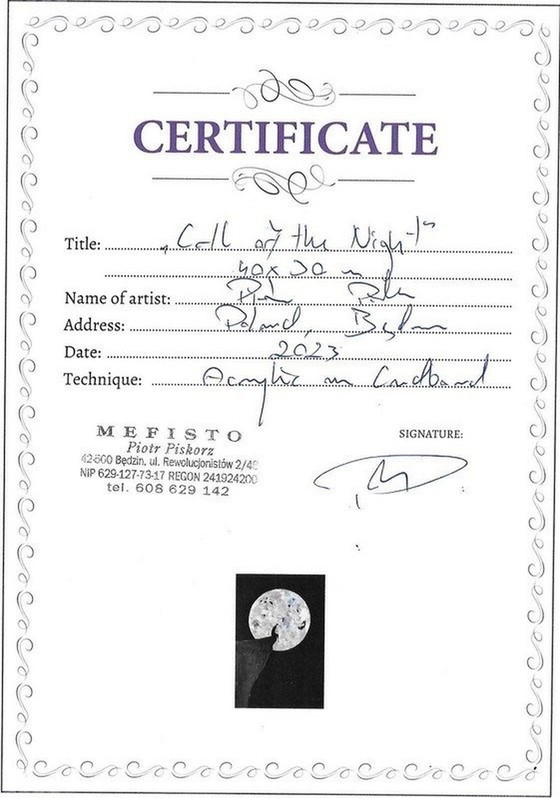 CERTIFICATE
Title: „Call of the Night"
40x30 cm
Name of artist: Piotr
Address: Poland, Będzin
Date: 2023
Technique: Acrylic on Cardboard
MEFISTO
Piotr Piskorz
42-500 Będzin, ul. Rewolucjonistów
NIP 629-127-73-17 REGON 241924200
tel. 608 629 142
SIGNATURE: